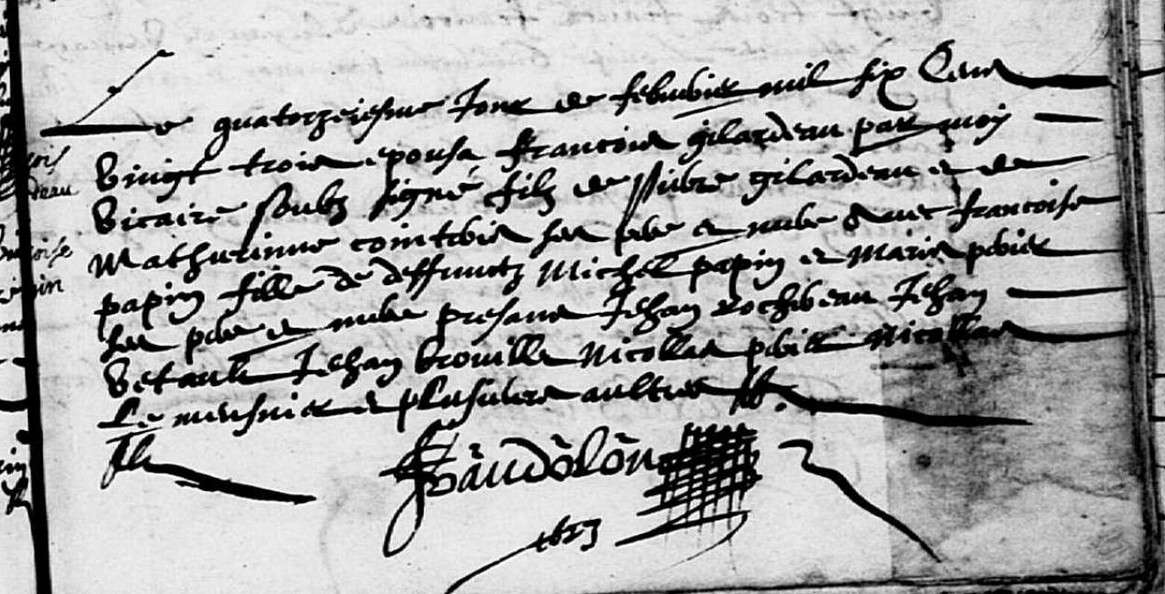 Le quatorzeiesme Jour de febvrier mil six Cens
Vingt trois espousa francois gilardeau par moy
Vicaire soubz signé filz de Pierre gilardeau et de
Mathurinne cointrie ses pere et mere Avec francoise
papin fille de deffunctz Michel papin et Marie
ses pere et mere presans Jehan Rochereau Jehan
Jehan brouille Nicollas Nicollas
Le meusnier et plusieurs aultres
1623